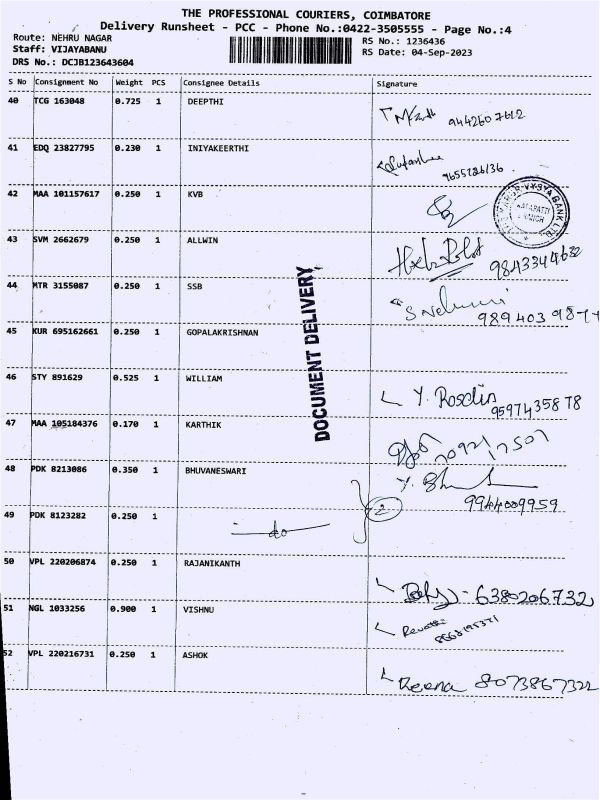 THE PROFESSIONAL COURIERS, COIMBATORE
Delivery Runsheet - PCC - Phone No.:0422-3505555 - Page No.:4
Route: NEHRU NAGAR
RS No.: 1236436
Staff: VIJAYABANU
RS Date: 04-Sep-2023
DRS No.: DCJB123643604
S No Consignment No Weight PCS Consignee Details Signature
40 TCG 163048 0.725 1 DEEPTHI
9442607612
41 EDQ 23827795 0.230 1 INIYAKEERTHI
9655726136
42 MAA 101157617 0.250 1 KVB
43 SVM 2662679 0.250 1 ALLWIN
9843344632
44 MTR 3155087 0.250 1 SSB
45 KUR 695162661 0.250 1 GOPALAKRISHNAN
DOCUMENT DELIVERY
46 STY 891629 0.525 1 WILLIAM
Y. Roselin
9597435878
47 MAA 105184376 0.170 1 KARTHIK
48 PDK 8213086 0.350 1 BHUVANESWARI
9944009959
49 PDK 8123282 0.250 1
do
2
50 VPL 220206874 0.250 1 RAJANIKANTH
6380206732
51 NGL 1033256 0.900 1 VISHNU
Revathi
8668195371
52 VPL 220216731 0.250 1 ASHOK
Reena 8073867322